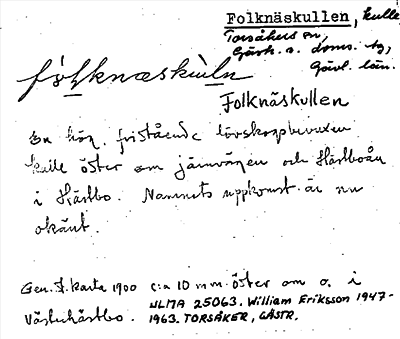 Folknäskullen, kulle
Torsåkers sn,
Gästr. ö. doms. tg,
Gävl. län.
fòlknæskùln
Folknäskullen
En hög, fristående lövskogsbevuxen
kulle öster om järnvägen och Hästboån
i Hästbo. Namnets uppkomst är nu
okänt.
Gen. st. karta 1900 c:a 10 mm öster om o. i
Västerhästbo.
ULMA 25063. William Eriksson 1947-
1963. TORSÅKER, GÄSTR.